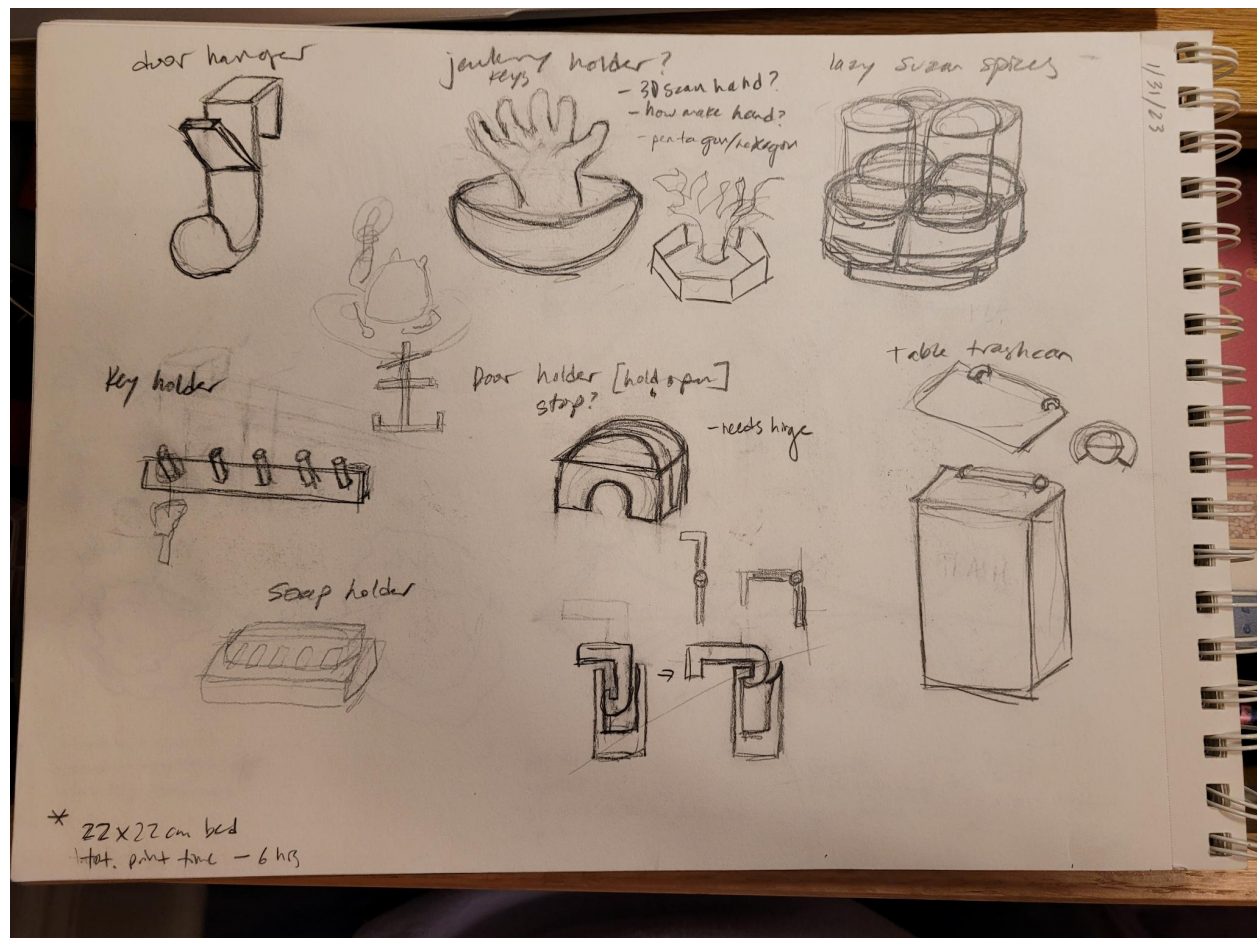 door hanger
jewlery holder?
keys
- 3D scan hand?
- how make hand?
- pentagon/hexagon
lazy suzan spices
1/31/23
Key holder
Door holder [hold open]
stop?
- needs hinge
Table trashcan
TRASH
soap holder
* 22x22 cm bed
tot. print time - 6 hrs